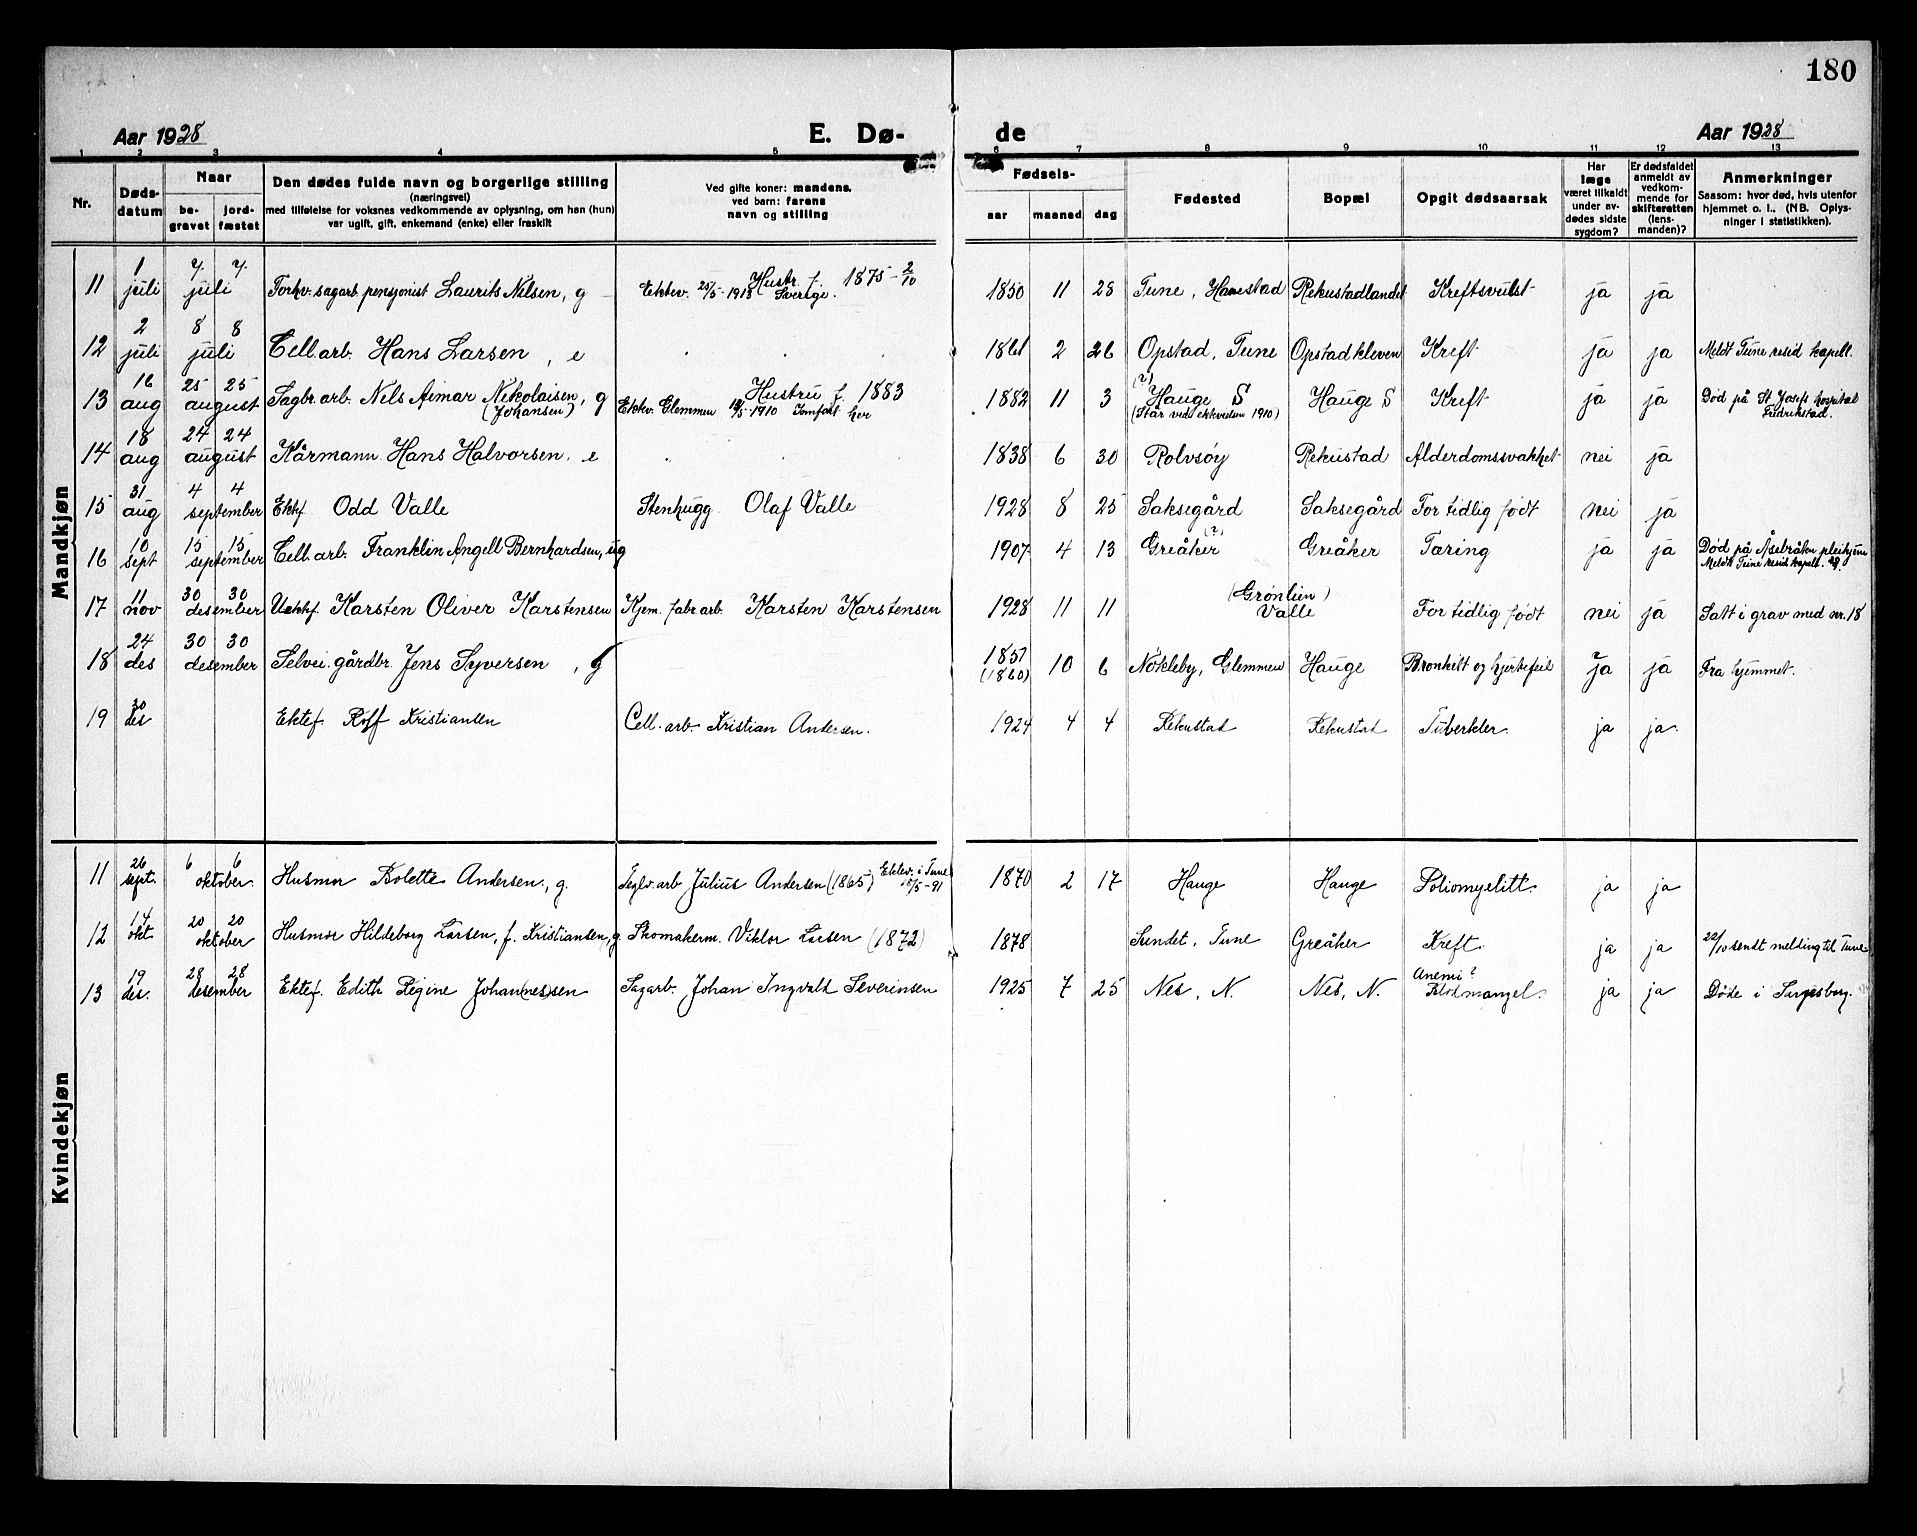 180
Aar 1928 E. Dø- de Aar 1928
1 2 3 4 5 6 7 8 9 10 11 12 13
Nr. Dødsdatum Naar begravet jordfæstet Den dødes fulde navn og borgerlige stilling (næringsvei) med tilføielse for voksnes vedkommende av oplysning, om han (hun) var ugift, gift, enkemand (enke) eller fraskilt Ved gifte koner: mandens, ved barn: farens navn og stilling Fødsels- aar maaned dag Fødested Bopæl Opgit dødsaarsak Har læge været tilkaldt under avdødes sidste sygdom? Er dødsfaldet anmeldt av vedkommende for skifteretten (lensmanden)? Anmerkninger Saasom: hvor død, hvis utenfor hjemmet o. l., (NB. Oplysninger i statistikken).
Mandkjøn
11 1 juli 7. 7. juli Forhv. sagarb. pensjonist Laurits Nilsen, g Ektev. 25/5-1918 Hustr. f. Sverige. 1875-2/10 1850 11 28 Tune, Hanestad Rekustadlandet Kreftsvulst ja ja
12 2 juli 8 8 juli Cell arb. Hans Larsen, e 1861 2 26 Opstad, Tune Opstadkleven Kreft ja ja Meldt Tune resid kapell.
13 16 aug 25 25 august Sagbr. arb. Nels Aimar Nikolaisen, g (Johansen) Ektev. Glemmen 1910 Hustru f. 1883 Jomfrukt her 1882 11 3 (?) Hauge S (Står ved ektevielsen 1910) Hauge S Kreft ja ja Død på St Josefs hospital Fredrikstad.
14 18 aug 24 24 august Kårmann Hans Halvorsen, e 1838 6 30 Rolvsøy Rekustad Alderdomssvakhet nei ja
15 31 aug 4 4 september Ektf Odd Valle Stenhugg. Olaf Valle 1928 8 25 Saksegård Saksegård For tidlig født nei ja
16 10 sept 15 15 september Cell. arb. Franklin Angell Bernhardsen, ug 1907 4 13 Greåker (?) Greåker Tæring ja ja Død på Åsebråten pleihjem Meldt Tune resid kapell.
17 11 nov 30 30 desember Uektf Karsten Oliver Karstensen Kjem. fabr arb. Karsten Karstensen 1928 11 11 (Grønlien) Valle For tidlig født nei ja Satt i grav med nr. 18
18 24 des 30 30 desember Selvei. gårdbr. Jens Syversen, g 1857 (1860) 10 6 Nökleby, Glemmen Hauge Bronkitt og hjertefeil ja ja Fra hjemmet.
19 30 des Ektef. Rolf Kristiansen Cell. arb. Kristian Andersen. 1924 4 4 Rekustad Rekustad Tuberkler. ja ja.
Kvindekjøn
11 26 sept. 6 6 oktober. Husmor Kolette Andersen, g. Teglv. arb Julius Andersen (1865) Ektev. i Tune 18/5-91 1870 2 17 Hauge Hauge Poliomyelitt. ja ja
12 14 okt 20 20 oktober Husmor Hildeborg Larsen, f. Kristiansen, g. Skomakerm. Viktor Larsen (1872) 1878 Sundet, Tune Greåker Kreft. ja ja 22/10 sendt melding til Tune
13 19 des. 28 28 desember Ektef. Edith Regine Johan(nes)sen Sagarb. Johan Ingvald Severinsen 1925 7 25 Nes, N. Nes, N. Anemi? Blodmangel. ja ja Døde i Sarpsborg.